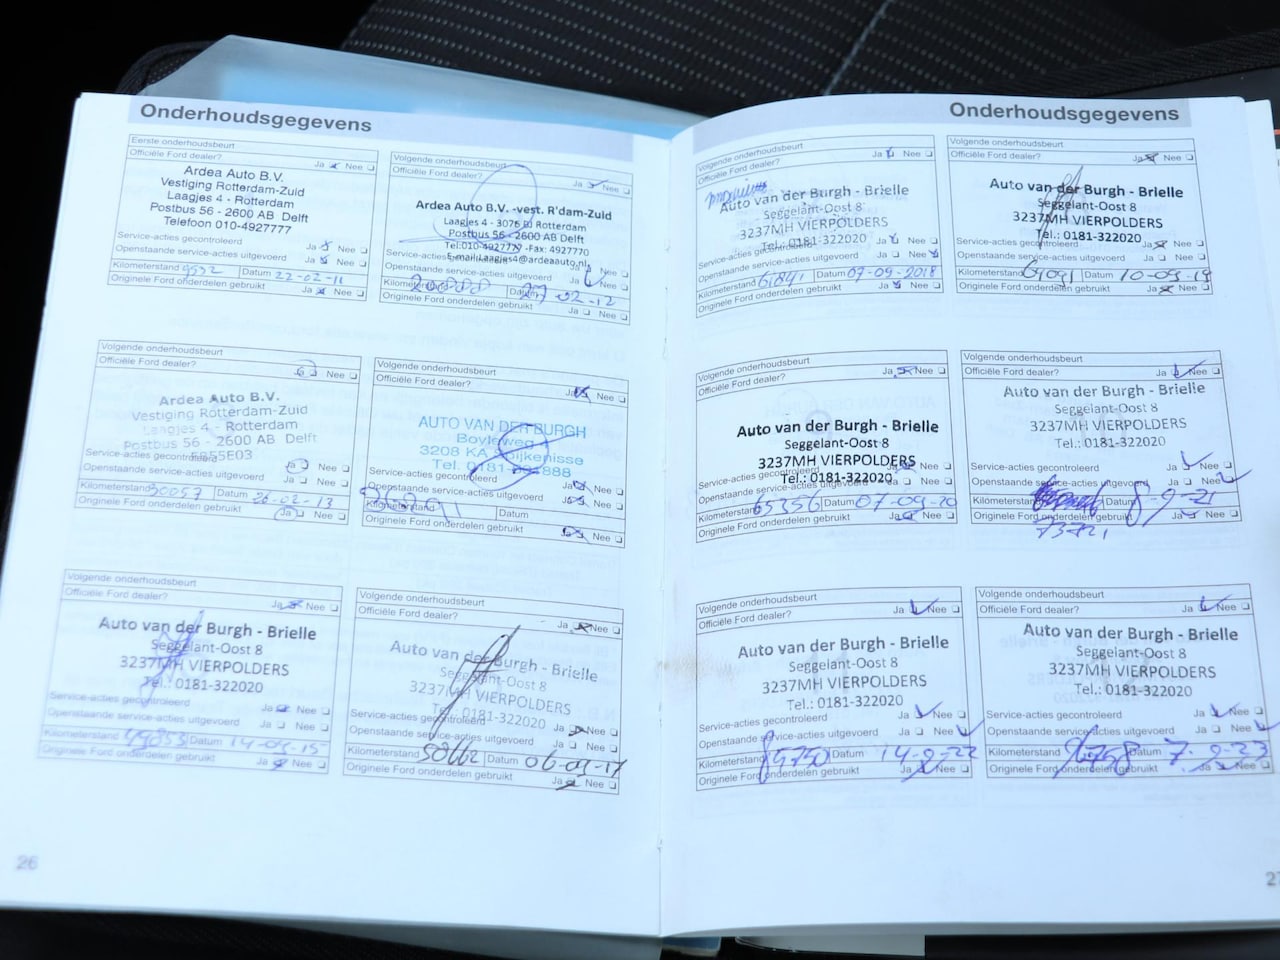 Onderhoudsgegevens
Eerste onderhoudsbeurt
Officiële Ford dealer? Ja Nee
Ardea Auto B.V.
Vestiging Rotterdam-Zuid
Laagjes 4 - Rotterdam
Postbus 56 - 2600 AB Delft
Telefoon 010-4927777
Service-acties gecontroleerd Ja Nee
Openstaande service-acties uitgevoerd Ja Nee
Kilometerstand Datum 22-02-11
Originele Ford onderdelen gebruikt Ja Nee
Volgende onderhoudsbeurt
Officiële Ford dealer? Ja Nee
Ardea Auto B.V. -vest. R'dam-Zuid
Laagjes 4 - 3076 BJ Rotterdam
Postbus 56 - 2600 AB Delft
Tel:010-4927777 -Fax: 4927770
E-mail:Laagjes4@ardeaauto.nl
Openstaande service-acties uitgevoerd Ja Nee
02-12
Originele Ford onderdelen gebruikt Ja Nee
Volgende onderhoudsbeurt
Officiële Ford dealer? Ja Nee
Ardea Auto B.V.
Vestiging Rotterdam-Zuid
Laagjes 4 - Rotterdam
Postbus 56 - 2600 AB Delft
Service-acties gecontroleerd Ja Nee
Openstaande service-acties uitgevoerd Ja Nee
Kilometerstand 30057 Datum 26-02-13
Originele Ford onderdelen gebruikt Ja Nee
Volgende onderhoudsbeurt
Officiële Ford dealer? Nee
AUTO VAN DER BURGH
Boyleweg
3208 KA Spijkenisse
Tel. 0181- 888
Service-acties gecontroleerd Nee
Openstaande service-acties uitgevoerd Nee
Kilometerstand Datum
Originele Ford onderdelen gebruikt Nee
Volgende onderhoudsbeurt
Officiële Ford dealer? Ja Nee
Auto van der Burgh - Brielle
Seggelant-Oost 8
3237MH VIERPOLDERS
Tel.: 0181-322020
Service-acties gecontroleerd Ja Nee
Openstaande service-acties uitgevoerd Ja Nee
Kilometerstand 49853 Datum 14-09-15
Originele Ford onderdelen gebruikt Ja Nee
Volgende onderhoudsbeurt
Officiële Ford dealer? Ja Nee
Auto van der Burgh - Brielle
Seggelant-Oost 8
3237MH VIERPOLDERS
Tel.: 0181-322020
Service-acties gecontroleerd Ja Nee
Openstaande service-acties uitgevoerd Ja Nee
Kilometerstand 58662 Datum 06-09-17
Originele Ford onderdelen gebruikt Ja Nee
26
Onderhoudsgegevens
Volgende onderhoudsbeurt
Officiële Ford dealer? Ja Nee
Auto van der Burgh - Brielle
Seggelant-Oost 8
3237MH VIERPOLDERS
Tel.: 0181-322020
Service-acties gecontroleerd Ja Nee
Openstaande service-acties uitgevoerd Ja Nee
Kilometerstand 61841 Datum 07-09-2018
Originele Ford onderdelen gebruikt Ja Nee
Volgende onderhoudsbeurt
Officiële Ford dealer? Ja Nee
Auto van der Burgh - Brielle
Seggelant-Oost 8
3237MH VIERPOLDERS
Tel.: 0181-322020
Service-acties gecontroleerd Ja Nee
Openstaande service-acties uitgevoerd Ja Nee
Kilometerstand Datum 10-09-19
Originele Ford onderdelen gebruikt Ja Nee
Volgende onderhoudsbeurt
Officiële Ford dealer? Ja Nee
Auto van der Burgh - Brielle
Seggelant-Oost 8
3237MH VIERPOLDERS
Tel.: 0181-322020
Service-acties gecontroleerd Nee
Openstaande service-acties uitgevoerd Ja Nee
Kilometerstand 65356 Datum 07-09-20
Originele Ford onderdelen gebruikt Ja Nee
Volgende onderhoudsbeurt
Officiële Ford dealer? Ja Nee
Auto van der Burgh - Brielle
Seggelant-Oost 8
3237MH VIERPOLDERS
Tel.: 0181-322020
Service-acties gecontroleerd Ja Nee
Openstaande service-acties uitgevoerd Ja Nee
Kilometerstand Datum 8-9-21
Originele Ford onderdelen gebruikt Ja Nee
Volgende onderhoudsbeurt
Officiële Ford dealer? Ja Nee
Auto van der Burgh - Brielle
Seggelant-Oost 8
3237MH VIERPOLDERS
Tel.: 0181-322020
Service-acties gecontroleerd Ja Nee
Openstaande service-acties uitgevoerd Ja Nee
Kilometerstand 85750 Datum 14-9-22
Originele Ford onderdelen gebruikt Ja Nee
Volgende onderhoudsbeurt
Officiële Ford dealer? Ja Nee
Auto van der Burgh - Brielle
Seggelant-Oost 8
3237MH VIERPOLDERS
Tel.: 0181-322020
Service-acties gecontroleerd Ja Nee
Openstaande service-acties uitgevoerd Ja Nee
Kilometerstand Datum 7-9-23
Originele Ford onderdelen gebruikt Ja Nee